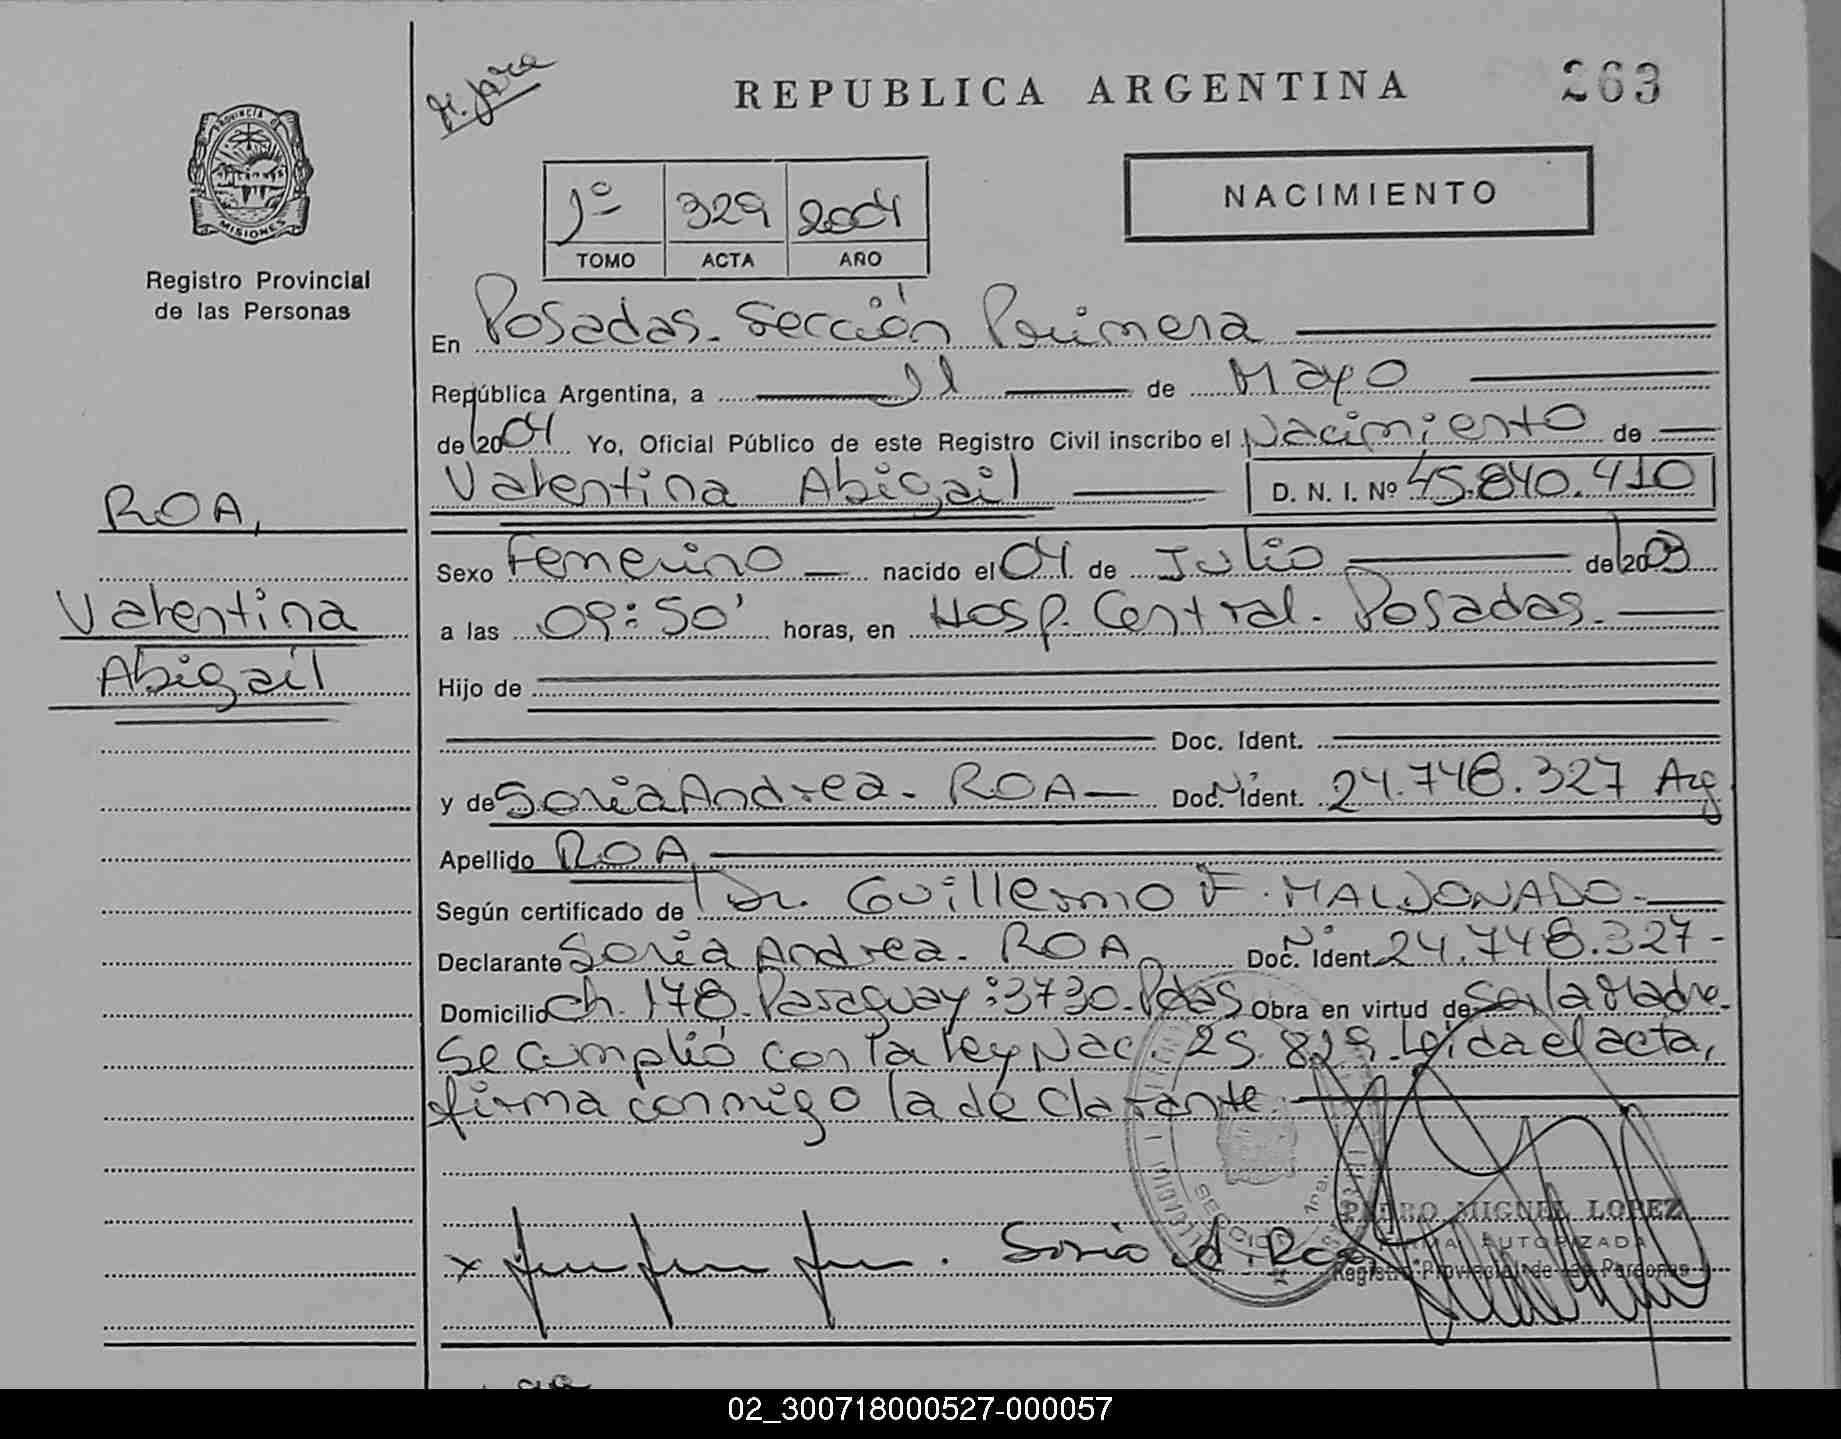 REPUBLICA ARGENTINA
263
PROVINCIA DE
MISIONES
Registro Provincial
de las Personas
1º 329 2004
TOMO ACTA AÑO
NACIMIENTO
En Posadas. Sección Primera
República Argentina, a 11 de Mayo
de 2004 Yo, Oficial Público de este Registro Civil inscribo el Nacimiento de
Valentina Abigail D. N. I. Nº 45.840.410
ROA,
Valentina
Abigail
Sexo Femenino nacido el 04 de Julio de 2003
a las 09:50' horas, en Hosp. Central. Posadas.
Hijo de
Doc. Ident.
y de Sonia Andrea. ROA Doc. Nº Ident. 24.748.327 Arg
Apellido ROA,
Según certificado de Dr. Guillermo F. MALDONADO.
Declarante Sonia Andrea. ROA Doc. Nº Ident. 24.748.327-
Domicilio Ch. 178. Paraguay: 3730. Pdas Obra en virtud de Ser la Madre.
Se cumplió con la ley Nac. 25.829. Leída el acta,
firma conmigo la declarante.
SECCION 1ra.
PEDRO MIGUEL LOPEZ
FIRMA AUTORIZADA
Registro Provincial de las Personas
x Sonia A. Roa
02_300718000527-000057